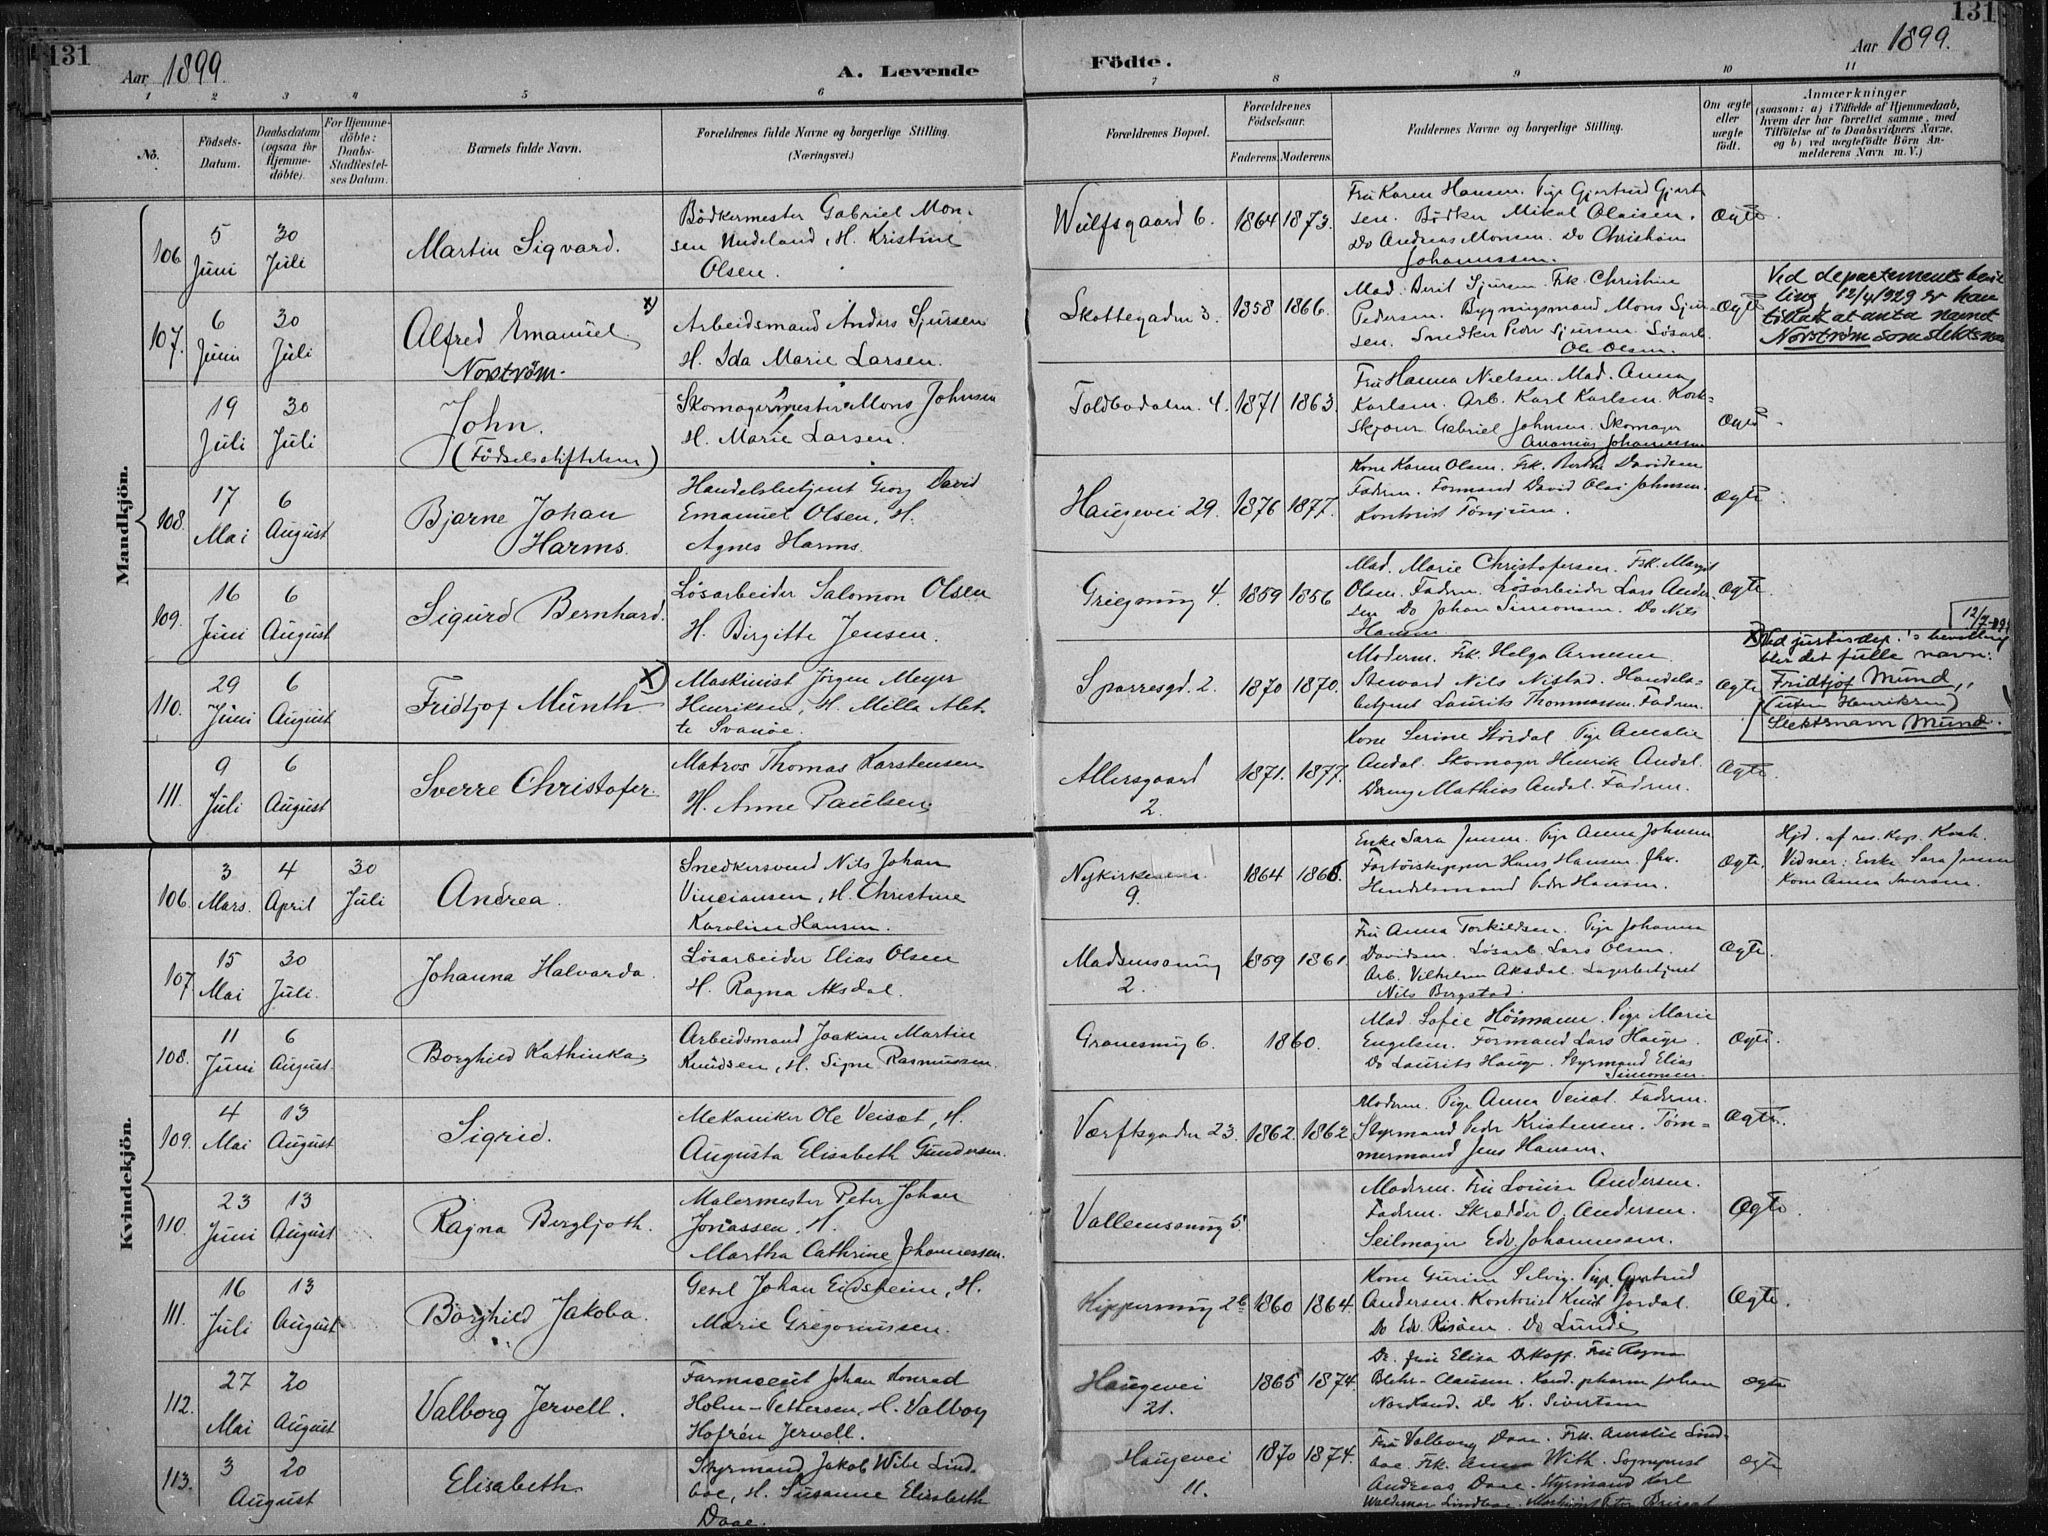 131
Aar 1899.
A. Levende
Födte.
Aar 1899.
131
1 2 3 4 5 6 7 8 9 10 11
No.
Födsels-
Datum.
Daabsdatum
(ogsaa for
Hjemme-
döbte).
For Hjemme-
döbte:
Daabs-
Stadfæstel-
ses Datum.
Barnets fulde Navn.
Forældrenes fulde Navne og borgerlige Stilling.
(Næringsvei.)
Forældrenes Bopæl.
Forældrenes
Födselsaar.
Faderens. Moderens.
Faddernes Navne og borgerlige Stilling.
Om ægte
eller
uægte
födt.
Anmærkninger
(saasom: a) i Tilfælde af Hjemmedaab,
hvem der har forrettet samme, med
Tilföielse af to Daabsvidners Navne,
og b) ved uægtefödte Börn An-
melderens Navn m. V.)
Mandkjön.
106.
5
Juni
30
Juli
Martin Sigvard.
Bödkermester Gabriel Mon-
sen Undeland, H. Kristine
Olsen.
Wulfsgaard 6.
1864 1873.
Fru Karen Hansen. Pige Gjertrud Gjert-
sen. Bödker Mikal Olaisen.
Do Andreas Monsen. Do Christian
Johannessen.
Ægte.
107.
6
Juni
30
Juli
Alfred Emanuel x)
Norström.
Arbeidsmand Anders Sjursen
H. Ida Marie Larsen.
Skottegaden 3.
1858 1866.
Mad. Berit Sjursen. Frk. Christine
Pedersen. Bygningsmand Mons Sjur-
sen. Snedker Peder Sjursen. Løsarb.
Ole Olsen.
Ægte
Ved departements bevil
ling 12/4 1929 er han
tillatt at anta navnet
Norström som slektsnavn
19
Juli
30
Juli
John.
(Födselsstiftelsen)
Skomagermester Mons Johnsen
H. Marie Larsen.
Toldbodalm. 4.
1871 1863.
Fru Hanna Nielsen. Mad. Anna
Karlsen. Arb. Karl Karlsen. Kork-
skjærer Gabriel Johnsen. Skomager
Ananias Johannesen
Ægte
108.
17
Mai
6
August
Bjarne Johan
Harms.
Handelsbetjent Georg David
Emanuel Olsen, H.
Agnes Harms.
Haugevei 29.
1876 1877.
Kone Karen Olsen. Frk. Berthe Davidsen
Faderen. Formand David Olai Johnsen.
Kontorist Tönjum.
Ægte
109.
16
Juni
6
August
Sigurd Bernhard.
Løsarbeider Salomon Olsen
H. Birgitte Jensen.
Griegsmug 4.
1859 1856
Mad. Marie Christofersen. Frk. Margit
Olsen. Faderen. Løsarbeider Lars Ander-
sen Do Johan Simonsen. Do Nils
Hansen
Ægte.
110.
29
Juni
6
August
Fridtjof Münth x)
Maskinist Jörgen Meyer
Henriksen, H. Milla Alet-
te Svanöe.
Sparresgd. 2.
1870 1870.
Moderen. Frk. Helga Arnesen
Steward Nils Nistad. Handels-
betjent Laurits Thommassen. Faderen.
Ægte
x) Ved justisdep.'s bevilling
blir det fulle navn:
Fridtjof Mund,
(uten Henriksen)
Slektsnavn Mund.
111.
9
Juli
6
August
Sverre Christofer.
Matros Thomas Karstensen
H. Anne Paulsen.
Allersgaard
2.
1871. 1877.
Kone Serine Stördal. Pige Amalie
Andal. Skomager Henrik Andal.
Dreng Mathias Andal. Faderen.
Ægte.
Kvindekjön.
106.
3
Mars.
4
April
30
Juli
Andrea.
Snedkersvend Nils Johan
Vinciansen, H. Christine
Karoline Hansen.
Nykirkealm.
9.
1864 1866.
Enke Sara Jensen. Pige Anna Johnsen
Førtöiskipper Hans Hansen. Fhv.
Handelsmand Peder Hansen.
Ægte.
Hjd. af res. Kap. Koch.
Vidner: Enke Sara Jensen
Kone Anna Iversen.
107.
15
Mai
30
Juli.
Johanna Halvarda.
Løsarbeider Elias Olsen
H. Ragna Aksdal.
Madsensmug
2.
1859 1861.
Fru Anna Torkildsen. Pige Johanna
Davidsen. Løsarb. Lars Olsen.
Arb. Vilhelm Aksdal. Lagerbetjent
Nils Bergstad.
Ægte.
108.
11
Juni
6
August
Borghild Kathinka.
Arbeidsmand Joakim Martin
Knudsen, H. Signe Rasmussen.
Granesmug 6.
1860.
Mad. Sofie Höimann. Pige Marie
Engelsen. Formand Lars Hauge.
Do Laurits Hauge. Styrmand Elias
Simonsen.
Ægte.
109.
4
Mai
13
August
Sigrid.
Mekaniker Ole Veisæt, H.
Augusta Elisabeth Gundersen.
Værftsgaden 23.
1862. 1862
Moderen. Pige Anna Veisæt. Faderen.
Styrmand Peder Kristensen. Töm-
mermand Jens Hansen.
Ægte.
110.
23
Juni
13
August
Ragna Bergljoth.
Malermester Peter Johan
Jonassen, H.
Martha Cathrine Johannessen.
Vallemsmug 5
Moderen. Fru Louise Andersen.
Faderen. Skrædder O. Andersen.
Seilmager Edv. Johannesen.
Ægte.
111.
16
Juli
13
August
Borghild Jakoba.
Gesel Johan Eidsheim, H.
Marie Gregoriussen.
Kippersmug 2b
1860 1864.
Kone Gurine Selvig. Pige Gjertrud
Andersen. Kontorist Knut Jordal.
Do Edv. Risöen. Do Lunde
Ægte.
112.
27
Mai
20
August
Valborg Jervell.
Farmaceut Johan Konrad
Holm-Pettersen, H. Valborg
Hofrén Jervell.
Haugevei
21.
1865 1874.
Fru Ragna
Blehr-Clausen. Kand. pharm Johan
Nordland. Do K. Sivertsen
Ægte
113.
3
August
20
Elisabeth.
Styrmand Jakob Wibe Lind-
boe, H. Susanne Elisabeth
Daae.
Haugevei
11.
1870 1874.
Fru Valborg Daae. Frk. Amalie Lind-
boe. Frk. Anna With. Sogneprest
Andreas Daae. Styrmand Karl
Waldemar Lindboe.
Ægte